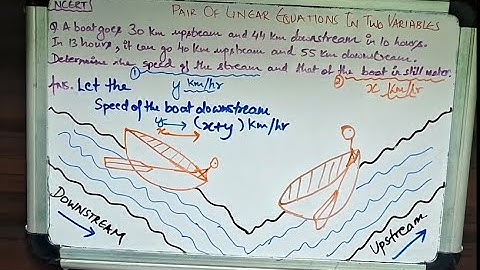 NCERT
PAIR OF LINEAR EQUATIONS IN TWO VARIABLES
Q. A boat goes 30 km upstream and 44 km downstream in 10 hours.
In 13 hours, it can go 40 km upstream and 55 km downstream.
Determine the speed of the stream and that of the boat in still water.
① y km/hr ② x km/hr
Ans. Let the
Speed of the boat downstream
y x → (x+y) km/hr
DOWNSTREAM
Upstream